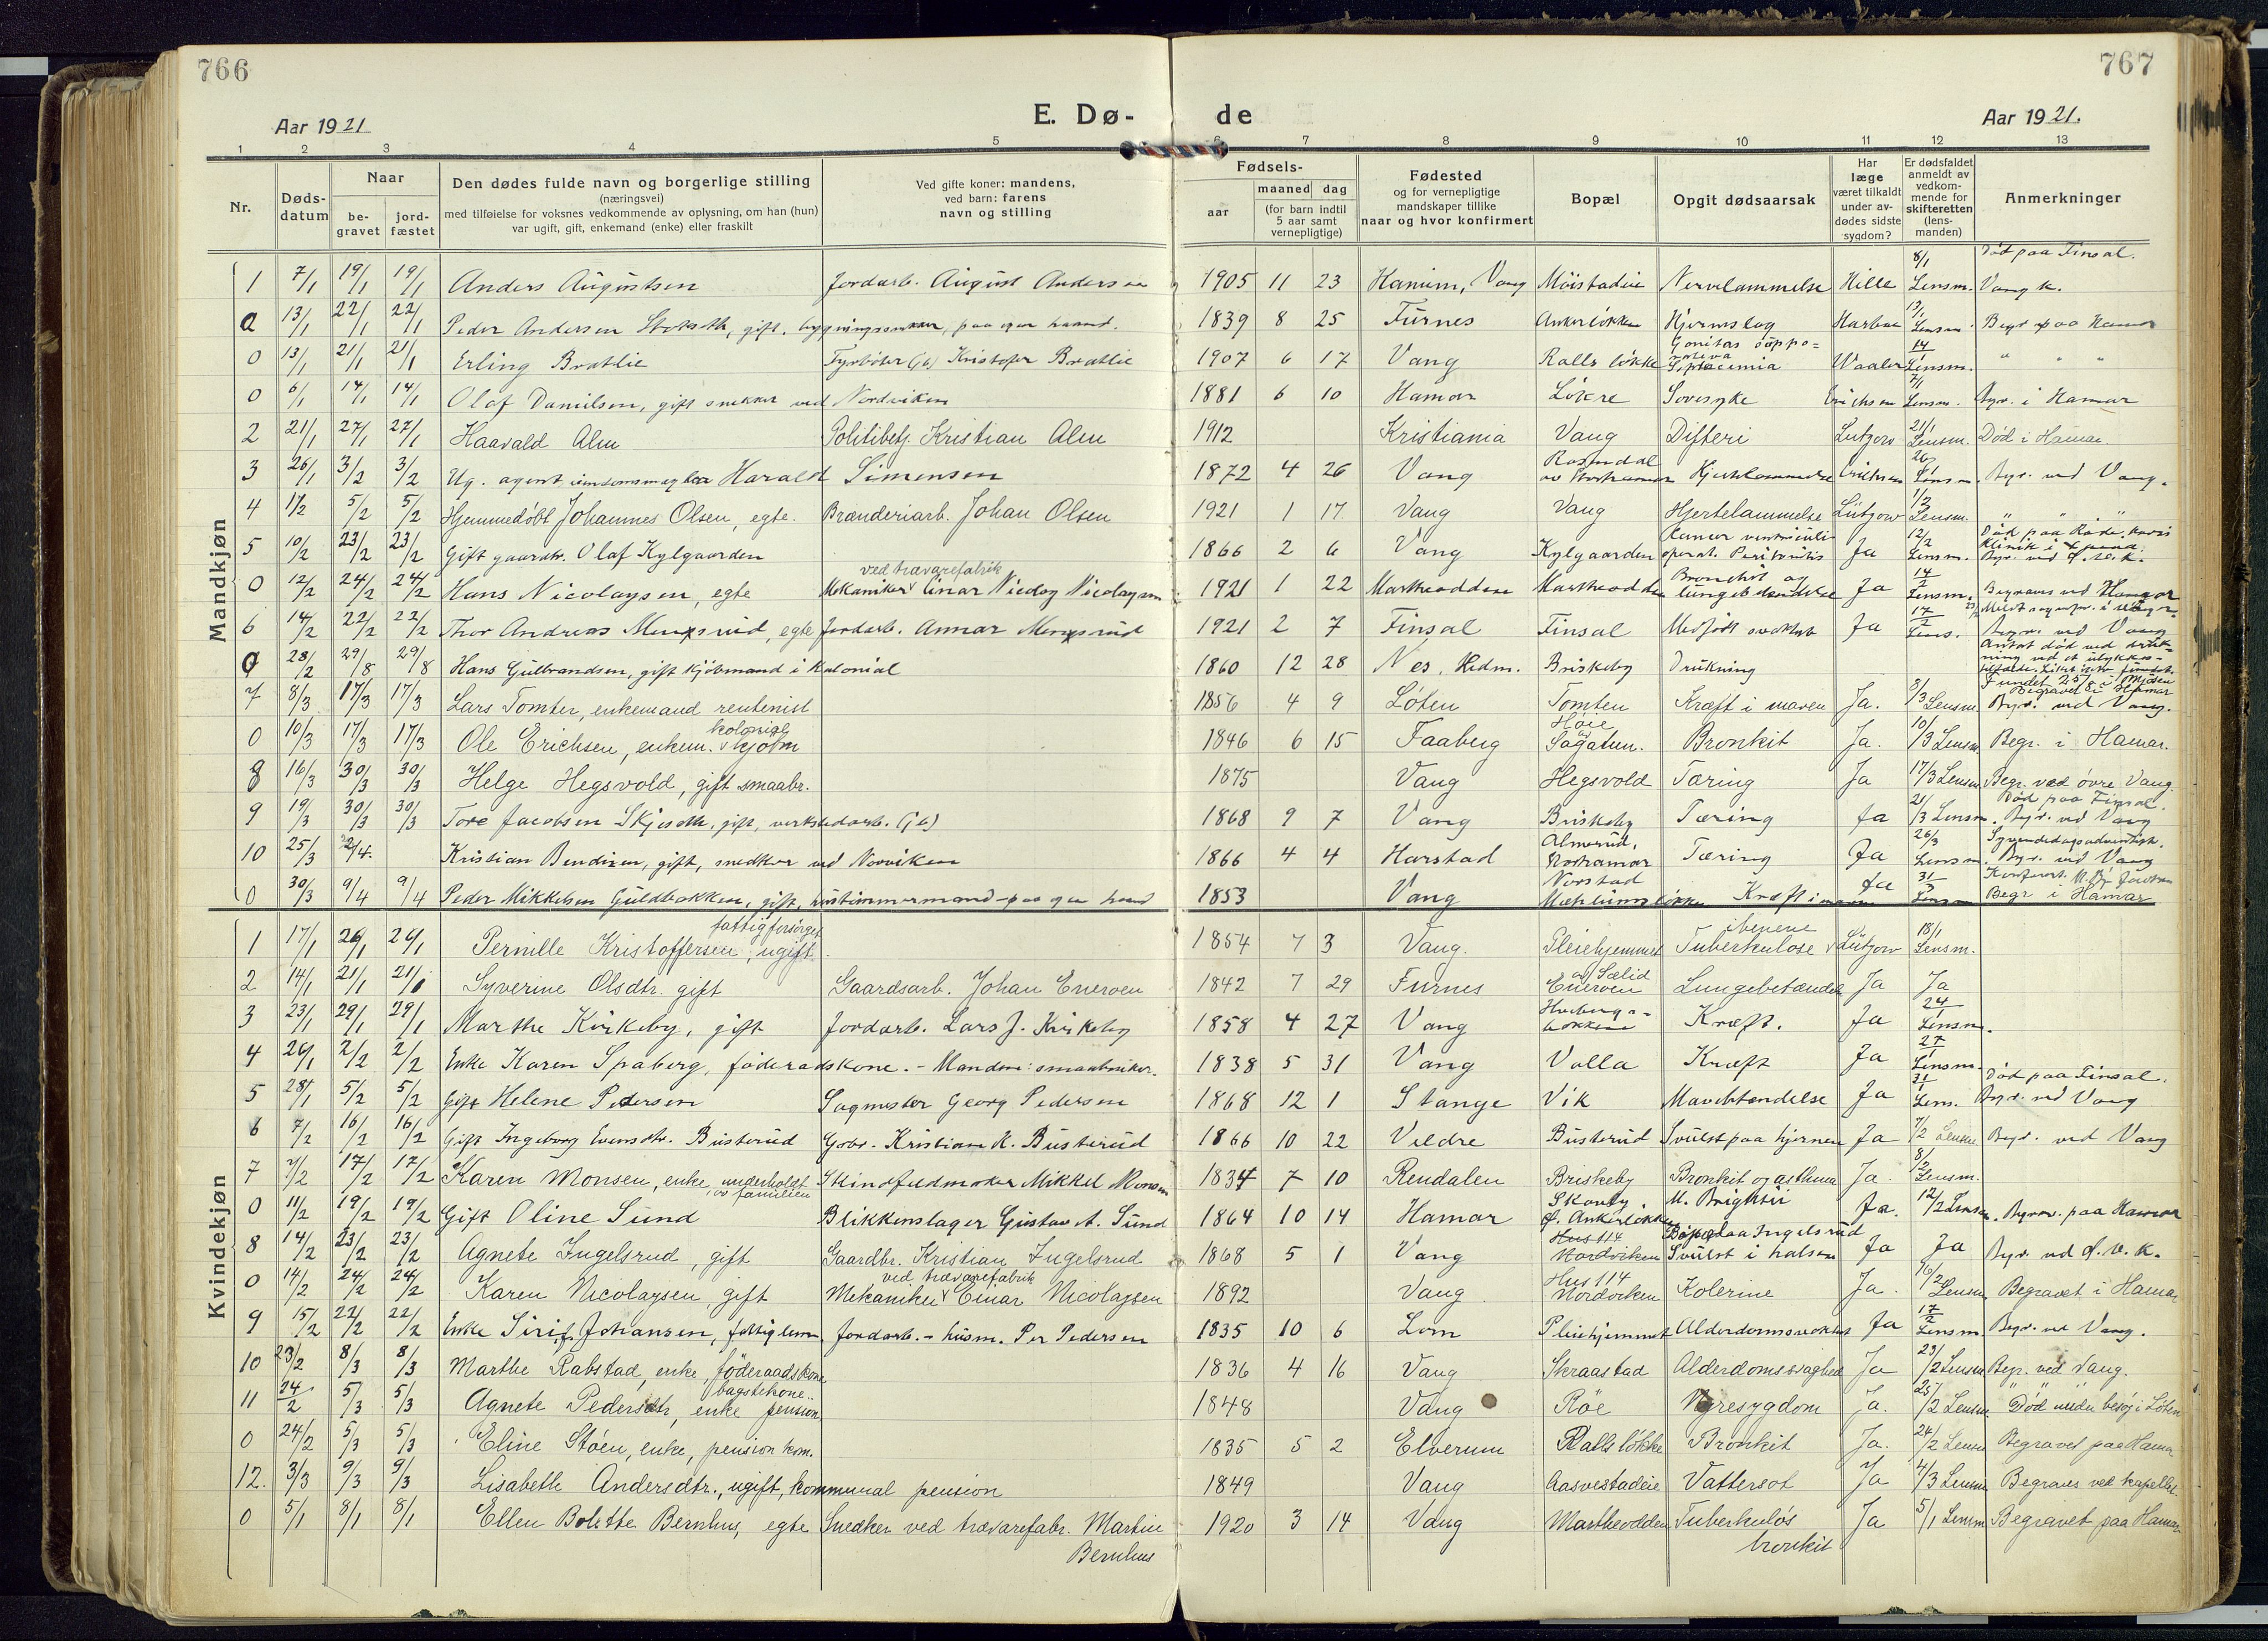 766
767
Aar 1921
E. Dø-
de
Aar 1921.
1 2 3 4 5 6 7 8 9 10 11 12 13
Nr.
Døds-
datum
Naar
be-
gravet
jord-
fæstet
Den dødes fulde navn og borgerlige stilling
(næringsvei)
med tilføielse for voksnes vedkommende av oplysning, om han (hun)
var ugift, gift, enkemand (enke) eller fraskilt
Ved gifte koner: mandens,
ved barn: farens
navn og stilling
Fødsels-
aar
maaned dag
(for barn indtil
5 aar samt
vernepligtige)
Fødested
og for vernepligtige
mandskaper tillike
naar og hvor konfirmert
Bopæl
Opgit dødsaarsak
Har
læge
været tilkaldt
under av-
dødes sidste
sygdom?
Er dødsfaldet
anmeldt av
vedkom-
mende for
skifteretten
(lens-
manden)
Anmerkninger
Mandkjøn
1 7/1 19/1 19/1 Anders Augustsen Jordarb. August Andersen 1905 11 23 Hanum, Vang Möistadeie Nervelammelse Hille 8/1 Lensm. Död paa Finsal. Vang k.
0 13/1 22/1 22/1 Peder Andersen gift. paa egen haand. 1839 8 25 Furnes Ankerløkken Hjerneslag 13/1 Lensm. Begr. paa Hamar
0 13/1 21/1 21/1 Erling Bratlie Fyrbøter (jb) Kristofer Bratlie 1907 6 17 Vang Ralls løkke Waaler 14/1 Lensm. " " "
0 6/1 14/1 14/1 Olaf Danielsen, gift snekker ved Nordviken 1881 6 10 Hamar Sovesyke Erichsen 7/1 Lensm. Begr. i Hamar
2 21/1 27/1 27/1 Haavald Alm Politibetj. Kristian Alm 1912 Kristiania Vang Difteri Lutzow 21/1 Lensm. Död i Hamar.
3 26/1 3/2 3/2 Ug. agent Harald Simensen 1872 4 26 Vang Rosendal Hjertelammelse Erichsen 26/1 Lensm. Begr. ved Vang.
4 1/2 5/2 5/2 Hjemmedöbt Johannes Olsen, egte. Brænderiarb. Johan Olsen 1921 1 17 Vang Vang Hjertelammelse Lützow 1/2 Lensm. " "
5 10/2 23/2 23/2 Gift gaardbr. Olaf Kylgaarden 1866 2 6 Vang Kylgaarden Kancer ventriculi operat. Peritonitis Ja 12/2 Lensm. Död paa Röde kors klinik i Begr. ved
0 12/2 24/2 24/2 Hans Nicolaysen, egte Mekaniker ved trævarefabrik Einar Nicolaysen 1921 1 22 Martheodden Martheodden Bronchit og lungebetændelse Ja 14/2 Lensm. Begraves ved Hamar
6 14/2 22/2 22/2 Thor Andreas egte Jordarb. 1921 2 7 Finsal Finsal Medfödt svakhet Ja 17/2 Lens. Begr. ved Vang
0 28/2 29/8 29/8 Hans Gulbrandsen, gift kjöbmand i kolonial 1860 12 28 Nes, Hedm. Briskeby Drukning Antat död ved druk- ning ved et ulykkes- tilfælde. Fundet 25/8 i Mjøsen Begravet i Hamar
7 8/3 17/3 17/3 Lars Tomter, enkemand rentenist 1856 4 9 Løten Tomten Kræft i maven Ja. 8/3 Lensm. Begr. ved Vang.
0 10/3 17/3 17/3 Ole Erichsen, enkem. kolonial kjöbm 1846 6 15 Faaberg Høie Sagatun. Bronkit Ja. 10/3 Lensm. Begr. i Hamar.
8 16/3 30/3 30/3 Helge Hegsvold, gift smaabr. 1875 Vang Hegsvold Tæring Ja 17/3 Lensm. Begr. ved övre Vang.
9 19/3 30/3 30/3 Tore Jacobsen gift, verkstedarb. (jb) 1868 9 7 Vang Briskeby Tæring Ja 21/3 Lensm. Död paa Finsal. Begr. ved Vang
10 25/3 2/4. Kristian Bendixen, gift, snedker ved Norviken 1866 4 4 Harstad Almerud, Storhamar Tæring Ja 26/3 Lensm. Syvendedagsadventist. Begr. ved Vang
0 30/3 9/4 9/4 Peder Mikkelsen Guldbakken, gift, hustimmermand paa egen haand 1853 Vang Norstad Kræft i maven Ja 31/3 Lensm Begr i Hamar
Kvindekjøn
1 17/1 26/1 26/1 Pernille Kristoffersen, ugift fattigforsørget. 1854 7 3 Vang. Pleiehjemmet Tuberkulose i benene Lützow 18/1 Lensm.
2 14/1 21/1 21/1 Syverine Olsdtr. gift Gaardsarb. Johan Eneroen 1842 7 29 Furnes Eneroen av Sælid Lungebetændelse Ja Ja
3 23/1 29/1 29/1 Marthe Kirkeby, gift Jordarb. Lars J. Kirkeby 1858 4 27 Vang Kræft. Ja 24/1 Lensm.
4 26/1 2/2 2/2 Enke Karen Spaberg, föderaadskone. - Manden: smaabruker. 1838 5 31 Vang Valla Kræft Ja 27/1 Lensm.
5 28/1 5/2 5/2 Gift Helene Pedersen Sagmester Georg Pedersen 1868 12 1 Stange Vik Mavebetændelse Ja 31/1 Lens. Död paa Finsal. Begr. ved Vang
6 7/2 16/2 16/2 Gift Ingeborg Evensdtr. Busterud Gbr. Kristian K. Busterud 1866 10 22 Veldre Busterud Svulst paa hjernen Ja 7/2 Lensm. Begr. ved Vang
7 7/2 17/2 17/2 Karen Monsen, enke, underholdt av familien Skindfeldmaker Mikkel Monsen 1834 7 10 Rendalen Briskeby Bronkit og asthma Ja. 8/2 Lensm.
0 11/2 19/2 19/2 Gift Oline Sund Blikkenslager Gustav A. Sund 1864 10 14 Hamar Skauby, Ankerløkken M. Brightii Ja. 12/2 Lensm. Begrav. paa Hamar
8 14/2 23/2 23/2 Agnete Ingelsrud, gift Gaardbr. Kristian Ingelsrud 1868 5 1 Vang Hus 114 Nordviken Bopæl paa Ingelsrud Svulst i halsen Ja Ja Begr. ved
0 14/2 24/2 24/2 Karen Nicolaysen, gift Mekaniker ved trævarefabrik Einar Nicolaysen 1892 Vang Hus 114 Nordviken Kolerine Ja. 16/2 Lensm. Begravet i Hamar
9 15/2 22/2 22/2 Enke Siri Johansen, fattiglem Jordarb. - husm. Per Pedersen 1835 10 6 Lom Pleiehjemmet Alderdomssvakhet Ja 17/2 Lensm. Begr. ved Vang.
10 23/2 8/3 8/3 Marthe Rabstad, enke, föderaadskone 1836 4 16 Vang Skraastad Alderdomssvaghed Ja 23/2 Lensm Begr. ved Vang.
11 24/2 5/3 5/3 Agnete Pedersdtr, enke bagstekone.. pension 1848 Vang Röe Nyresygdom Ja. 25/2 Lensm. Död under besøg i Löten
0 24/2 5/3 5/3 Eline Støen, enke, pension kom. 1835 5 2 Elverum Ralls løkke Bronkit Ja. 24/2 Lensm Begravet paa Hamar
12. 3/3 9/3 9/3 Lisabeth Andersdtr., ugift, kommunal pension 1849 Vang Aasvestadeie Vattersot Ja 4/3 Lensm Begraves ved kapellet.
0 5/1 8/1 8/1 Ellen Bolette Bernhus, egte Snedker ved trævarefabr. Martin Bernhus 1920 3 14 Vang Martheodden Tuberkuløs bronkit Ja 5/1 Lensm Begravet paa Hamar